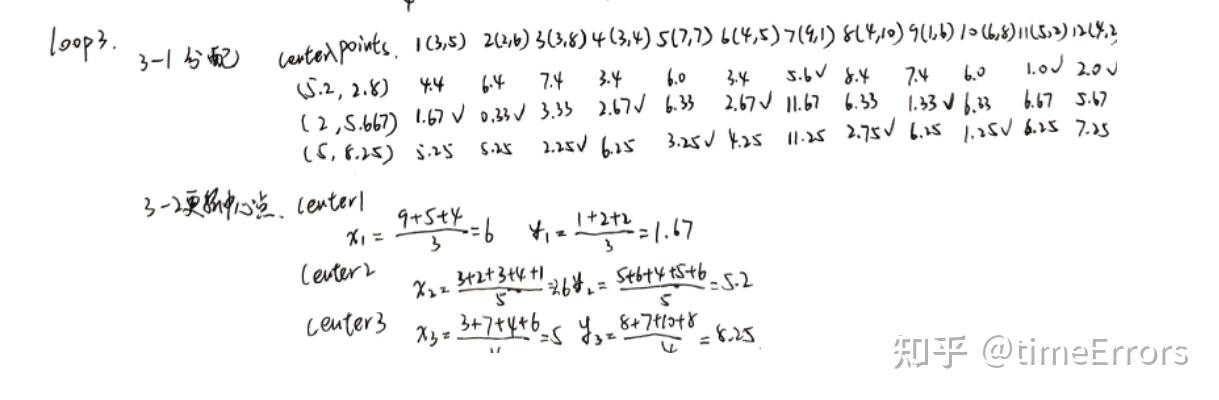 loop3.
3-1 分配 center\points. 1(3,5) 2(2,6) 3(3,8) 4(3,4) 5(7,7) 6(4,5) 7(9,1) 8(4,10) 9(1,6) 10(6,8) 11(5,2) 12(4,2
(5.2, 2.8) 4.4 6.4 7.4 3.4 6.0 3.4 5.6✓ 8.4 7.4 6.0 1.0✓ 2.0✓
(2,5.667) 1.67✓ 0.33✓ 3.33 2.67✓ 6.33 2.67✓ 11.67 6.33 1.33✓ 6.33 6.67 5.67
(5, 8.25) 5.25 5.25 2.25✓ 6.25 3.25✓ 4.25 11.25 2.75✓ 6.25 1.25✓ 6.25 7.25
3-2更新中心点、center1
x₁ = (9+5+4)/3 = 6 y₁ = (1+2+2)/3 = 1.67
center2 x₂ = (3+2+3+4+1)/5 = 2.6 y₂ = (5+6+4+5+6)/5 = 5.2
center3 x₃ = (3+7+4+6)/4 = 5 y₃ = (8+7+10+8)/4 = 8.25.
知乎 @timeErrors